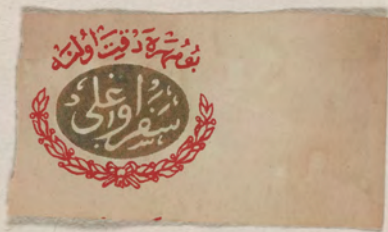 بو مهره دقت اولنه
سفر اوغلی